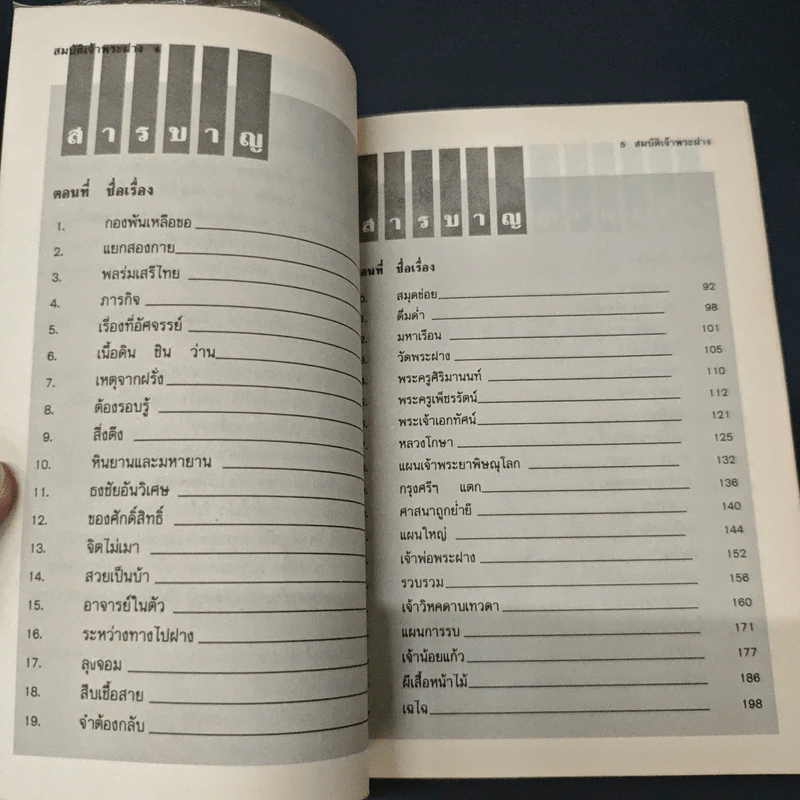 สมบัติเจ้าพระฝาง 4
สารบาญ
ตอนที่ ชื่อเรื่อง
1. กองพันเหลือขอ
2. แยกสองกาย
3. พลร่มเสรีไทย
4. ภารกิจ
5. เรื่องที่อัศจรรย์
6. เนื้อดิน ชิน ว่าน
7. เหตุจากฝรั่ง
8. ต้องรอบรู้
9. สิ่งดึง
10. หินยานและมหายาน
11. ธงชัยอันวิเศษ
12. ของศักดิ์สิทธิ์
13. จิตไม่เมา
14. สวยเป็นบ้า
15. อาจารย์ในตัว
16. ระหว่างทางไปฝาง
17. ลุงจอม
18. สืบเชื้อสาย
19. จำต้องกลับ
5 สมบัติเจ้าพระฝาง
สารบาญ
ตอนที่ ชื่อเรื่อง
สมุดข่อย 92
ดื่มด่ำ 98
มหาเรือน 101
วัดพระฝาง 105
พระครูศิริมานนท์ 110
พระครูเพ็ชรรัตน์ 112
พระเจ้าเอกทัศน์ 121
หลวงโกษา 125
แผนเจ้าพระยาพิษณุโลก 132
กรุงศรีฯ แตก 136
ศาสนาถูกย่ำยี 140
แผนใหญ่ 144
เจ้าพ่อพระฝาง 152
รวบรวม 156
เจ้าวิหคดาบเทวดา 160
แผนการรบ 171
เจ้าน้อยแก้ว 177
ผีเสื้อหน้าไม้ 186
เฉไฉ 198